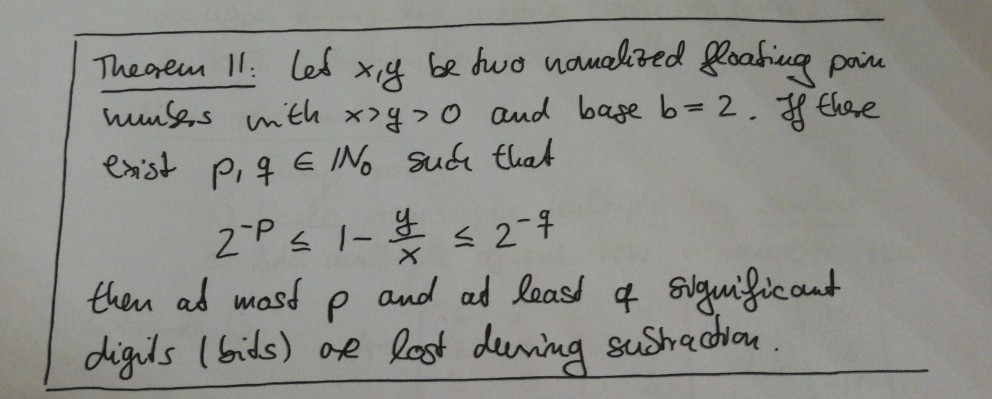 Theorem 11: Let x,y be two normalized floating poin
numbers with x>y>0 and base b=2. If there
exist p, q ∈ ℕ₀ such that
2^{-p} ≤ 1 - y/x ≤ 2^{-q}
then at most p and at least q significant
digits (bits) are lost during substraction.